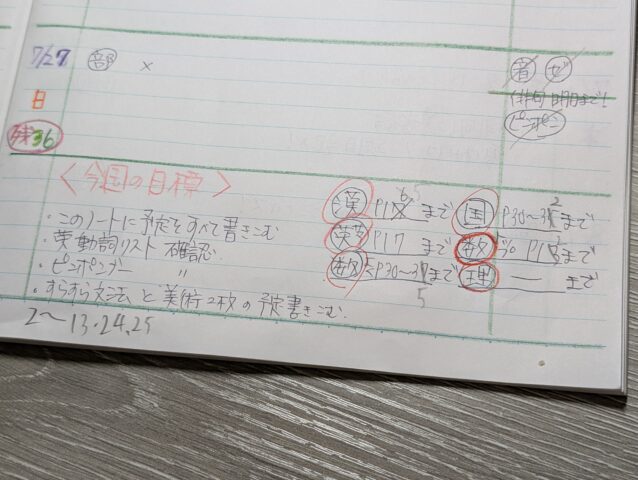 7/27 部 ×
日
残36
者 ゼ
明日まで!
ピンポン
〈今週の目標〉
・このノートに予定をすべて書きこむ
・英動詞リスト 確認
・ピンポンブー 〃
・すらすら文法 と 美術2枚の予定書きこむ.
2〜13.24.25
漢 P1 まで
国 P30〜3 まで
英 P17 まで
数 P1 まで
数 P30〜3 まで
5
理 ー まで